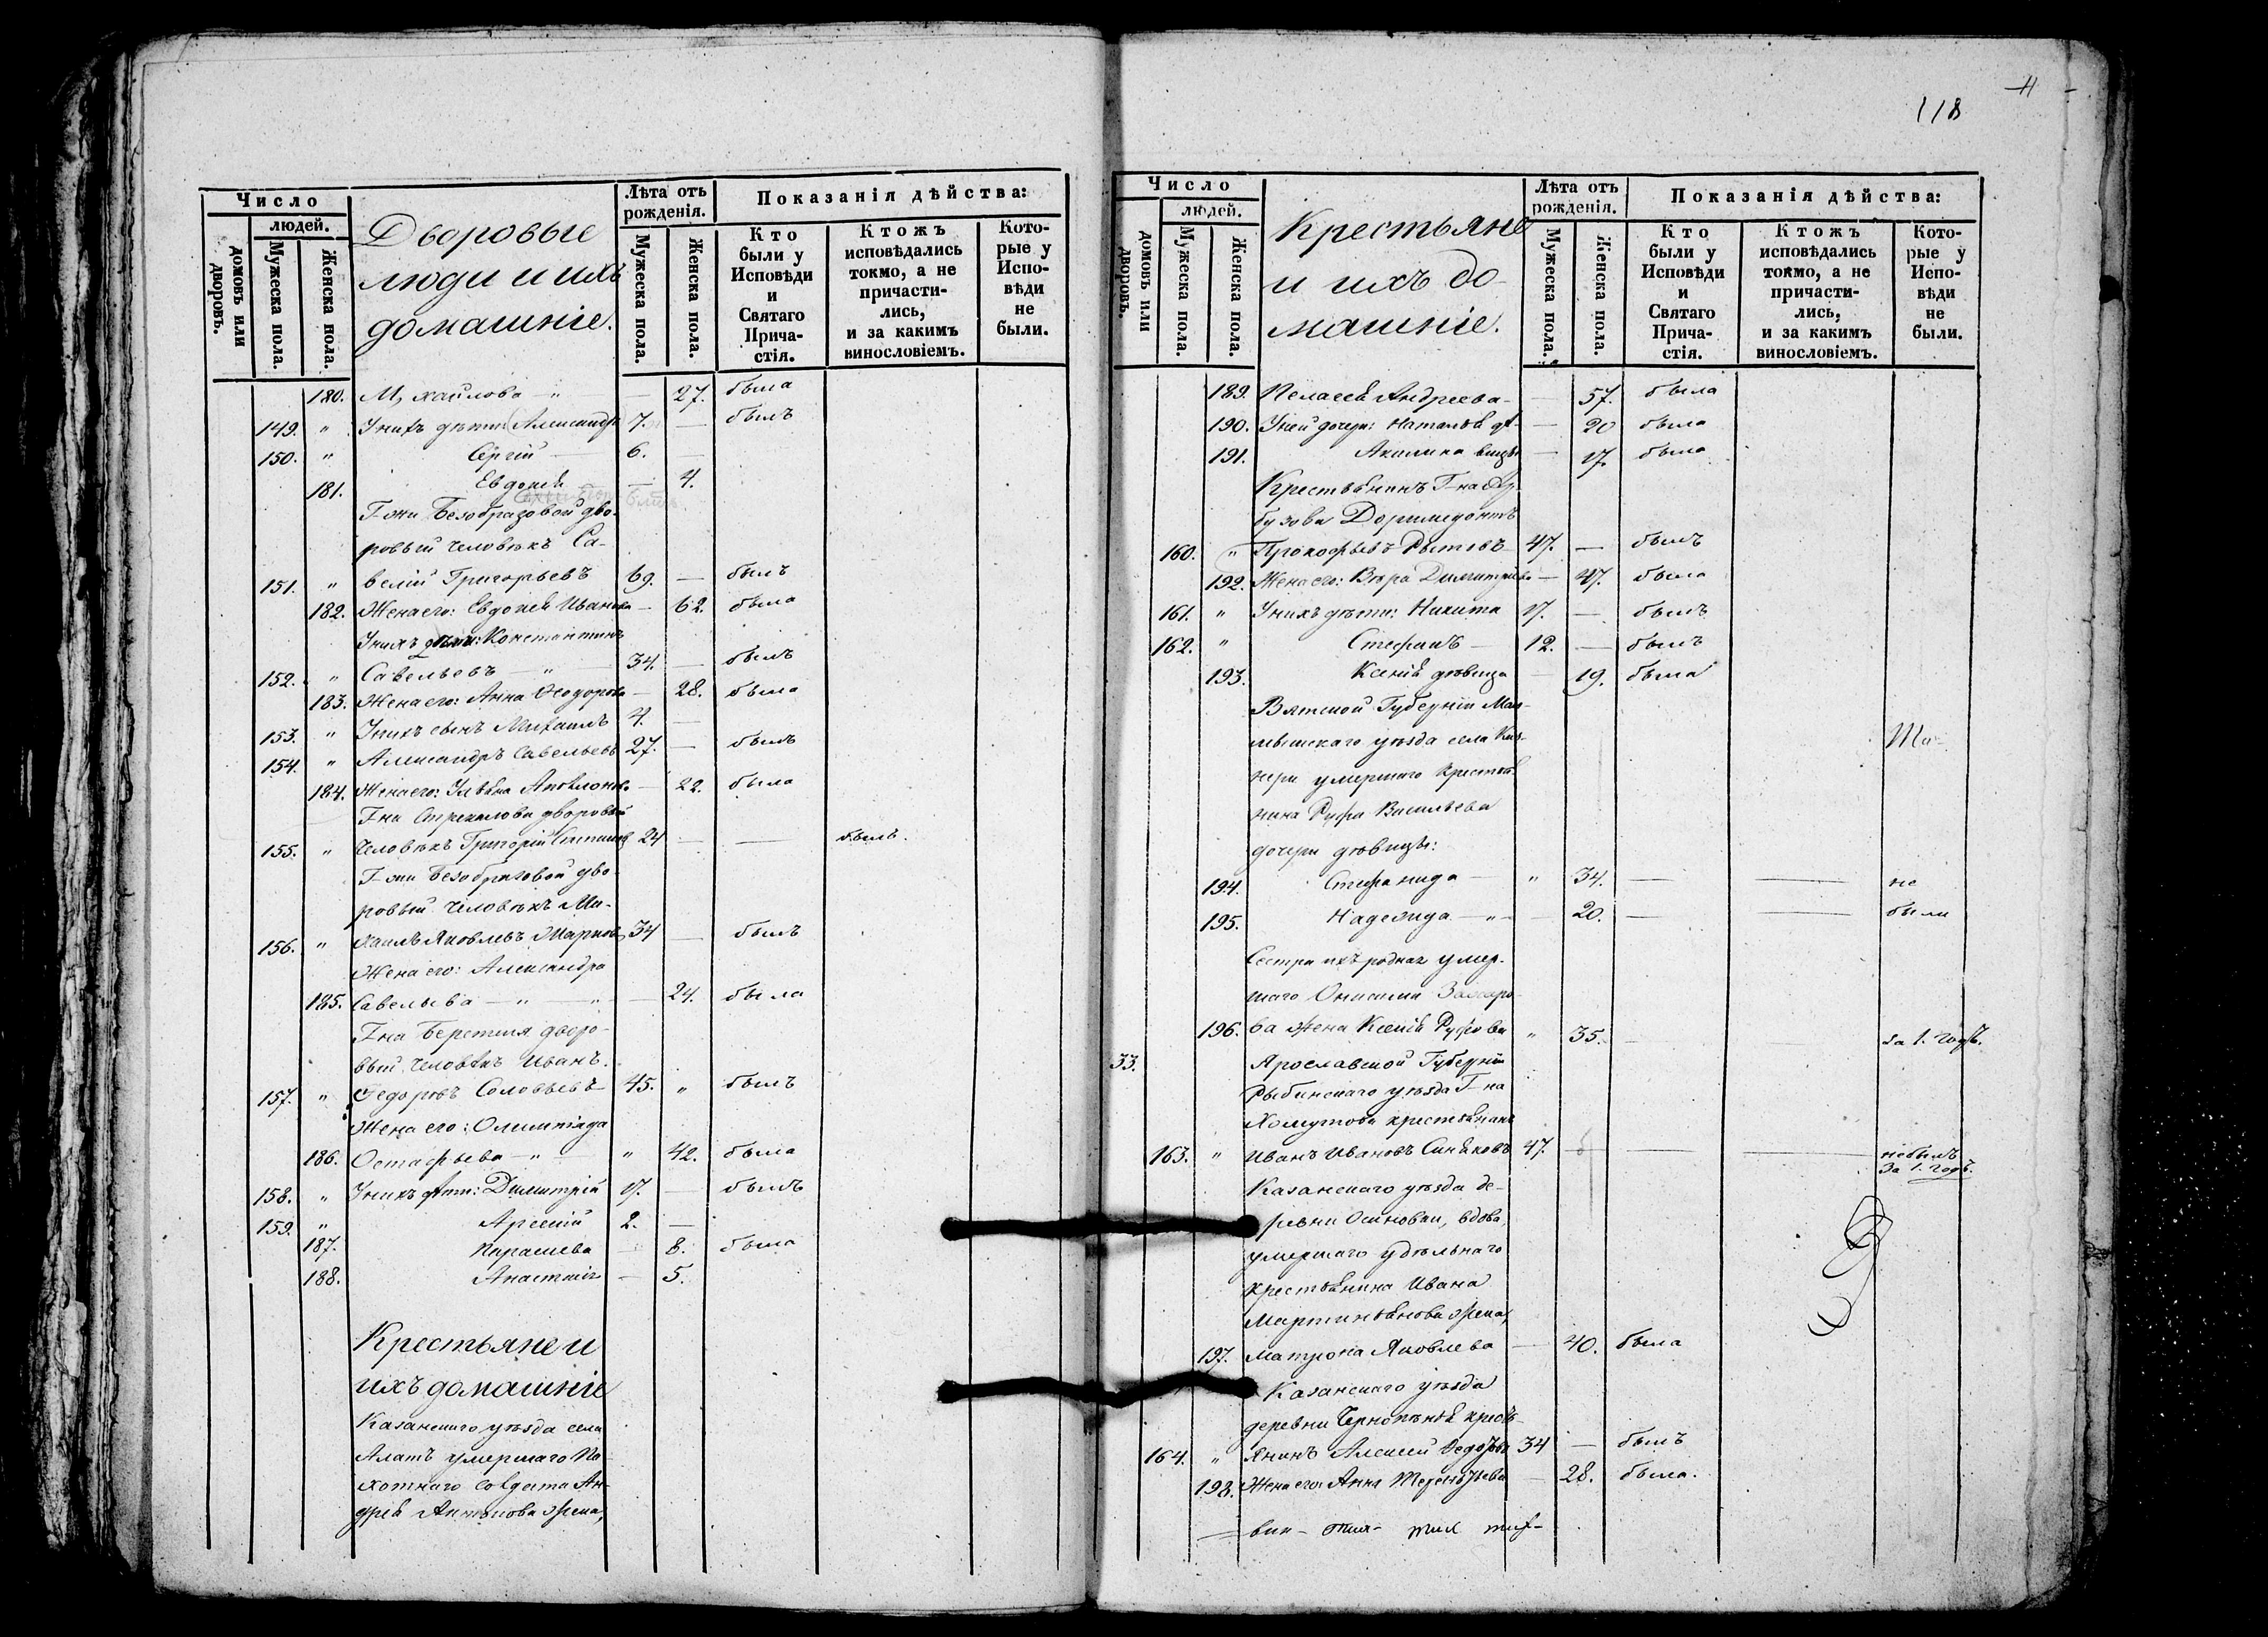 Число
людей.
домовъ или дворовъ.
Мужеска пола.
Женска пола.
Дворовые
люди и ихъ
домашніе.
Лѣта отъ рожденія.
Мужеска пола.
Женска пола.
Показанія дѣйства:
Кто были у Исповѣди и Святаго Прича-стія.
Ктожъ исповѣдались токмо, а не причасти-лись, и за какимъ винословіемъ.
Кото-рые у Испо-вѣди не были.
180. Михайлова — " — 27. была
149. " У нихъ дѣти: Александръ 7. — былъ
150. " Сергій — 6. —
181. Евдокія — 4.
Г-жи Безобразовой дво-
ровый человѣкъ Са-
151. " велій Григорьевъ 69. — былъ
182. Жена его: Евдокія Иванова — 62. была
У нихъ дѣти: Константинъ
152. " Савельевъ — " — 34. — былъ
183. Жена его: Анна Ѳеодорова — 28. была
153. " У нихъ сынъ Михаилъ 4. —
154. " Александръ Савельевъ 27. — былъ
184. Жена его: Ульяна — 22. была
Г-на дворовый
155. " Человѣкъ Григорій 24 — — былъ.
Г-жи Безобразовой дво-
ровый человѣкъ Ми-
156. " хаилъ Яковлевъ Марковъ 34 — былъ
Жена его: Александра
185. Савельева — " — " — 24. была
Г-на дворо-
вый человѣкъ Иванъ
157. " Ѳедоровъ Соловьевъ 45. " былъ
Жена его: Олимпіада
186. Остафьева — " — " 42. была
158. " У нихъ дѣти: Димитрій 17. — былъ
159. " Арсеній 2. —
187. Параскева — 8. была
188. Анастасія — 5.
Крестьяне и
ихъ домашніе
Казанскаго уѣзда села
Алатъ умершаго Па-
хотнаго солдата Ан-
дрея Антонова жена,
118
Число
людей.
домовъ или дворовъ.
Мужеска пола.
Женска пола.
Крестьяне
и ихъ до-
машніе.
Лѣта отъ рожденія.
Мужеска пола.
Женска пола.
Показанія дѣйства:
Кто были у Исповѣди и Святаго Прича-стія.
Ктожъ исповѣдались токмо, а не причасти-лись, и за какимъ винословіемъ.
Кото-рые у Испо-вѣди не были.
189. Пелагея Андреева — — 57. была
190. У ней дочери: Наталья дѣ- — 20 была
191. Акилина вицы — 17. была
Крестьянинъ Г-на
бузова Доримедонтъ
160. " Прокофьевъ 47. — былъ
192. Жена его: Вѣра Димитріева — 47. была
161. " У нихъ дѣти: Никита 17. — былъ
162. " Стефанъ — 12. — былъ
193. Ксенія дѣвица — 19. была
Вятской Губерніи Мал-
мышскаго уѣзда села Киз-
нери умершаго крестья-
нина Руфа Васильева
дочери дѣвицы:
194. Стефанида — " 34. — — не
195. Надежда — " — — 20. — — были
Сестра ихъ родная умер-
шаго Онисима Захаро-
196. ва жена Ксенія Руфова " 35. — — за 1. годъ.
33. Ярославской Губерніи
Рыбинскаго уѣзда Г-на
Хомутова крестьянинъ
163. " Иванъ Ивановъ Синяковъ 47. — — небылъ за 1. годъ.
Казанскаго уѣзда де-
ревни Осиновки, вдова,
умершаго удѣльнаго
крестьянина Ивана
Мартиньянова жена,
197. Матрона Яковлева — 40. была
Казанскаго уѣзда
деревни кресть-
164. " янинъ Алексей Ѳедоровъ 34 — былъ
198. Жена его: Анна Терентьева — 28. была.